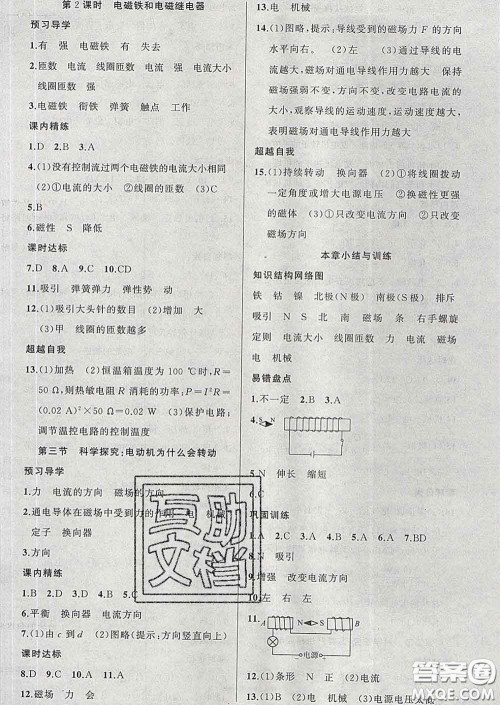 第2课时 电磁铁和电磁继电器
预习导学
1.有 强 电磁铁 有 强
2.匝数 电流 线圈匝数 电流 强 电流大小
线圈匝数
3.电磁铁 衔铁 弹簧 触点 工作
课内精练
1.D 2.B 3.A
4.(1)没有控制流过两个电磁铁的电流大小相同
(2)①电流的大小 ②线圈的匝数 (3)C
5.B
6.磁性 S 降低
课时达标
7.D 8.A 9.C 10.D
11.吸引 弹簧弹力 弹性势 动
12.(1)吸引大头针的数目 (2)增加 大
(3)甲 线圈的匝数
超越自我
13.(1)加热 (2)恒温箱温度为 100 ℃时,
则热敏电阻 R 消耗的功率:P=I²R=
(0.02 A)²×50 Ω=0.02 W (3)保护电路;
调节温控电路的控制温度
第三节 科学探究:电动机为什么会转动
预习导学
1.力 电流的方向 磁场的方向
2.通电导体在磁场中受力的作用 电 机械
定子 换向器
3.方向
课内精练
1.B 2.B 3.D 4.D 5.A
6.平衡 换向器 电流方向
7.(1)由 c 到 d (2)图略(提示:方向竖直向上)
课时达标
8.D 9.C 10.A 11.D
12.磁场 力 会
13.电 机械
14.(1)图略,提示:导线受到的磁场力 F 的方向
水平向右。 (2)通过导线的电流越大,导线的
电流越大,磁场对通电导线作用力越大 保持
磁场强弱不变,方向不变,改变电路电流的
大小,观察导线的运动速度,运动速度越大,
表明磁场对通电导线作用力越大
超越自我
15.(1)持续转动 换向器 (2)①将线圈拨动
一定角度或增大电源电压 ②换磁性更强
的磁体 (3)①只改变电流方向 ②只改变
磁场方向
本章小结与训练
知识结构网络图
铁 钴 镍 北极(N极) 南极(S极) 排斥
吸引 N S 北 南 磁场 条 右手螺旋
定则 电流大小 线圈匝数 电流 力 磁场
电 机械
易错盘点
1.不一定 2.B 3.A
4. S N
5.N 伸长 缩短
6.C
巩固训练
1.A 2.C 3.A 4.A 5.C 6.B 7.D
8.N 吸引
9.增强 改变电流方向
10.左 右 左
11. A N S B
电源
12.(1)条形 N (2)正
13.(1)B (2)电 机械 (3)电源电压太低
互助
文档
答案圈
MXQE.COM